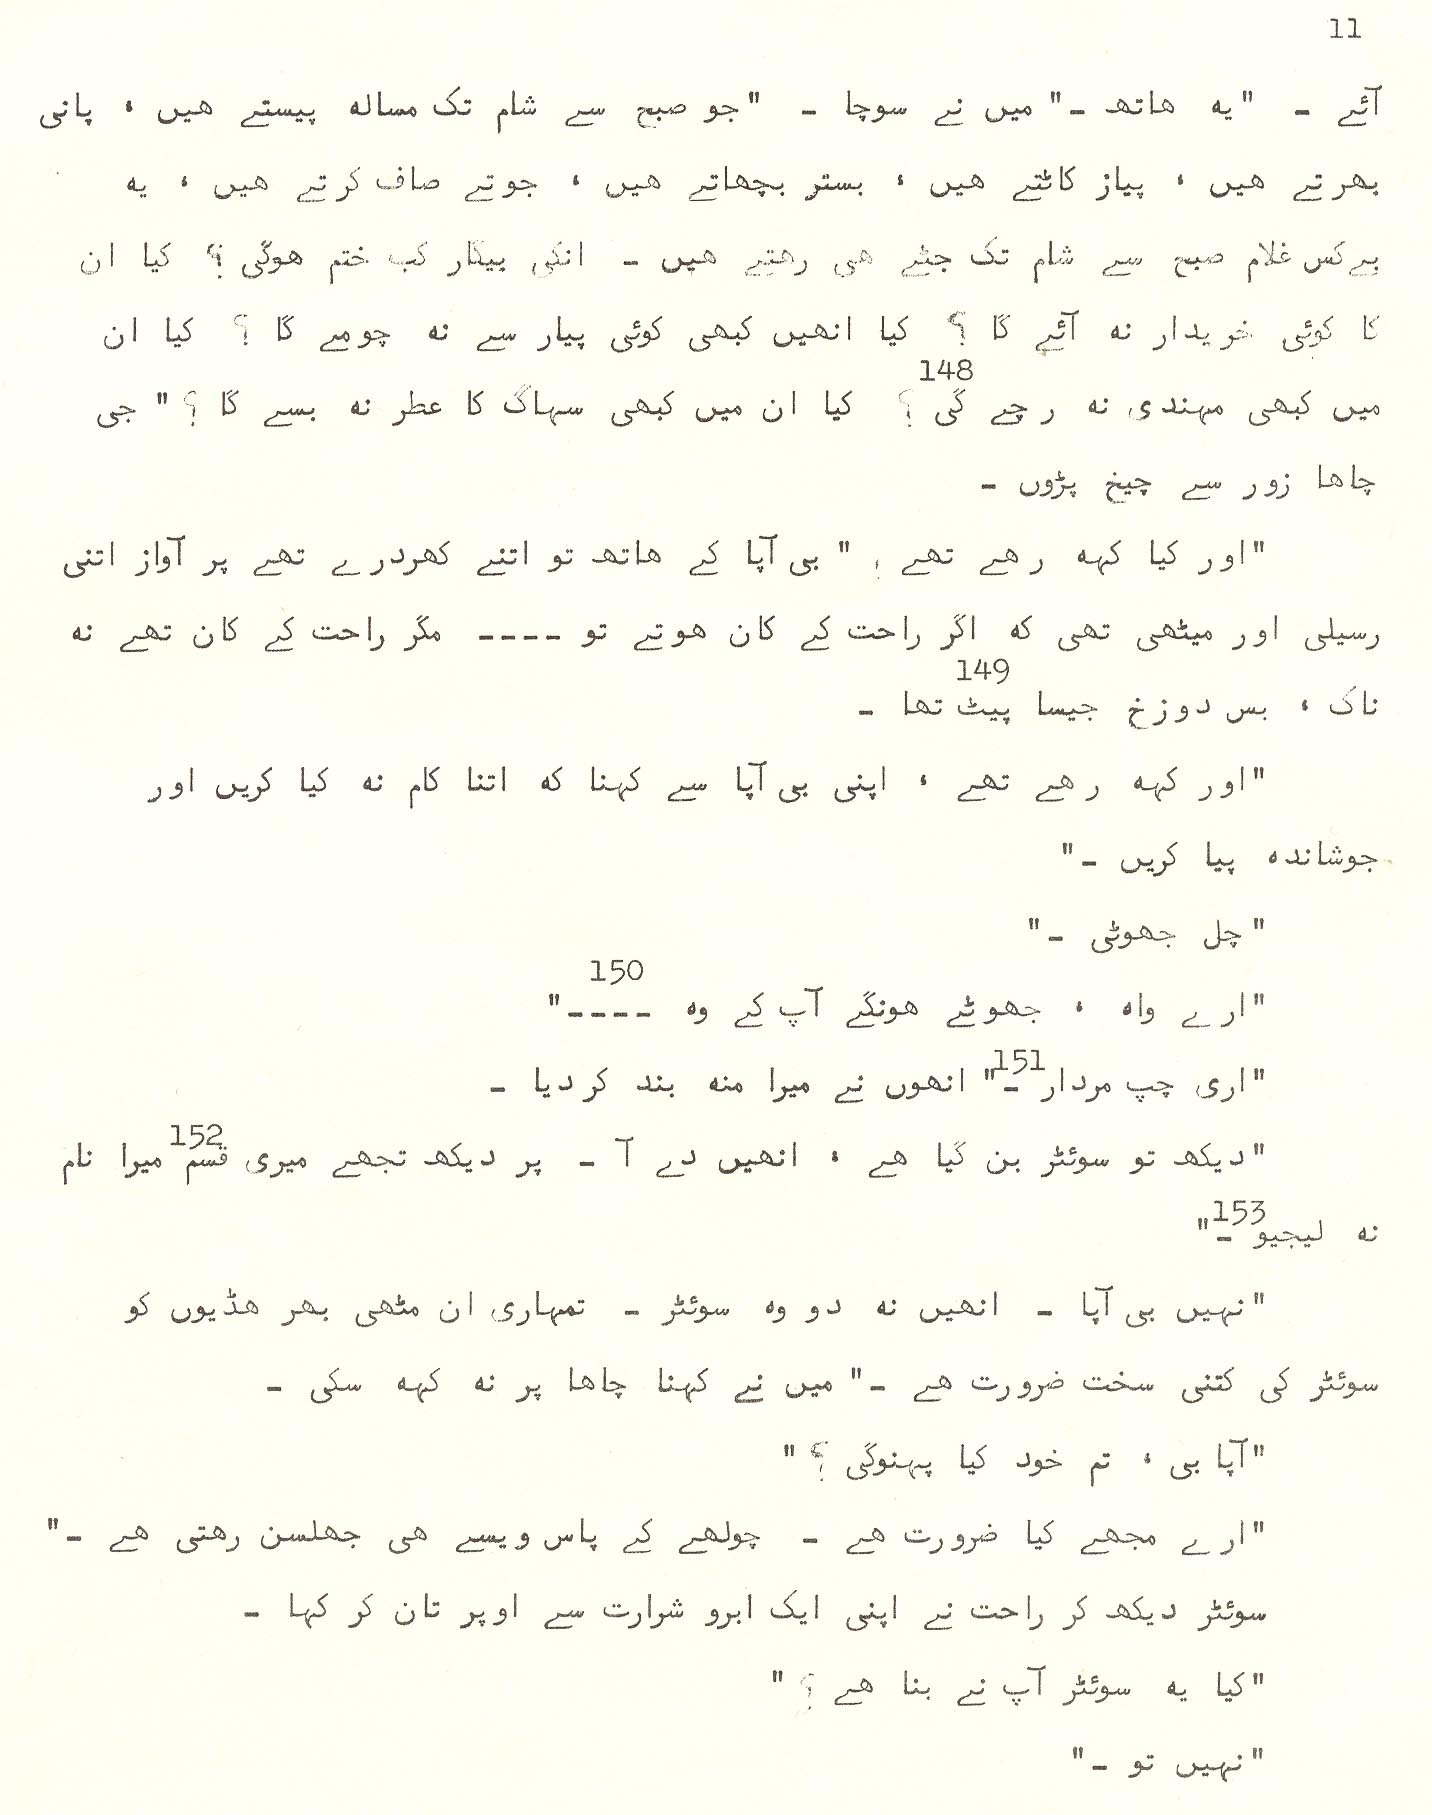 11
آئے ـ "یه هاتھ ـ" میں نے سوچا ـ "جو صبح سے شام تک مساله پیستے هیں ، پانی
بھرتے هیں ، پیاز کاٹتے هیں ، بستر بچھاتے هیں ، جوتے صاف کرتے هیں ، یه
بےکس غلام صبح سے شام تک جٹے هی رهتے هیں ـ انکی بیگار کب ختم هوگی ؟ کیا ان
کا کوئی خریدار نه آئے گا ؟ کیا انھیں کبھی کوئی پیار سے نه چومے گا ؟ کیا ان
میں کبھی مہندی نه رچے گی 148 ؟ کیا ان میں کبھی سہاگ کا عطر نه بسے گا ؟" جی
چاها زور سے چیخ پڑوں ـ
"اور کیا کہه رهے تھے ، " بی آپا کے هاتھ تو اتنے کھردرے تھے پر آواز اتنی
رسیلی اور میٹھی تھی که اگر راحت کے کان هوتے تو ـ ـ ـ ـ مگر راحت کے کان تھے نه
ناک ، بس دوزخ جیسا پیٹ 149 تھا ـ
"اور کہه رهے تھے ، اپنی بی آپا سے کہنا که اتنا کام نه کیا کریں اور
جوشانده پیا کریں ـ"
"چل جھوٹی ـ"
"ارے واه ، جھوٹے هونگے آپ کے وه 150 ـ ـ ـ ـ"
"اری چپ مردار 151 ـ" انھوں نے میرا منه بند کر دیا ـ
"دیکھ تو سوئٹر بن گیا هے ، انھیں دے آ ـ پر دیکھ تجھے میری قسم 152 میرا نام
نه لیجیو 153 ـ"
"نہیں بی آپا ـ انھیں نه دو وه سوئٹر ـ تمہاری ان مٹھی بھر هڈیوں کو
سوئٹر کی کتنی سخت ضرورت هے ـ" میں نے کہنا چاها پر نه کہه سکی ـ
"آپا بی ، تم خود کیا پہنوگی ؟ "
"ارے مجھے کیا ضرورت هے ـ چولھے کے پاس ویسے هی جھلسن رهتی هے ـ"
سوئٹر دیکھ کر راحت نے اپنی ایک ابرو شرارت سے اوپر تان کر کہا ـ
"کیا یه سوئٹر آپ نے بنا هے ؟ "
"نہیں تو ـ"